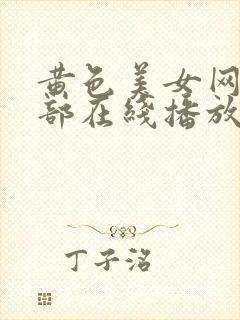 黄色美女网
部在綫播放
丁子洺